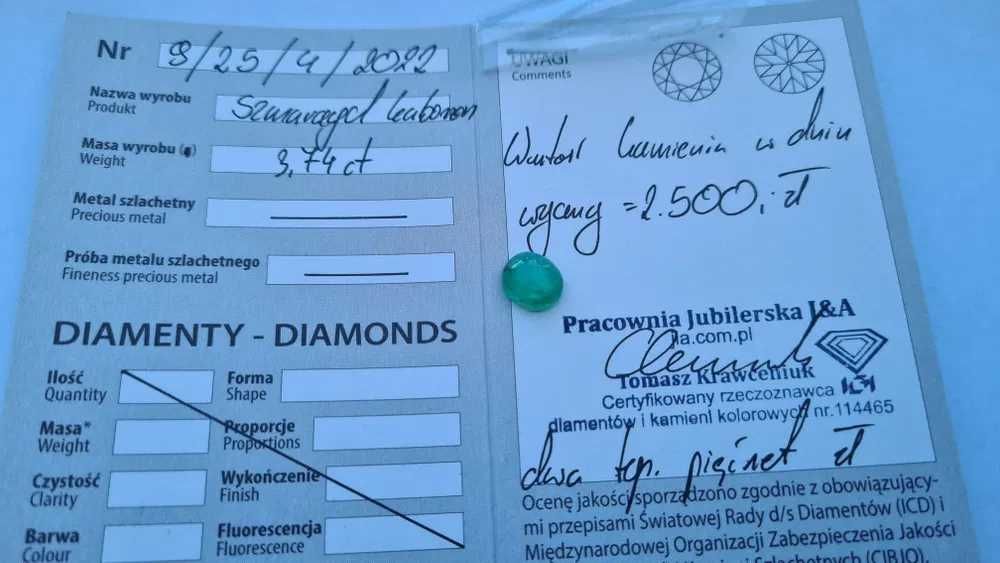 Nr 9/25/4/2022
Nazwa wyrobu
Produkt
Szmaragd kaboszon
Masa wyrobu (g)
Weight
3,74 ct
Metal szlachetny
Precious metal
Próba metalu szlachetnego
Fineness precious metal
DIAMENTY - DIAMONDS
Ilość
Quantity
Forma
Shape
Masa*
Weight
Proporcje
Proportions
Czystość
Clarity
Wykończenie
Finish
Barwa
Colour
Fluorescencja
Fluorescence
UWAGI
Comments
Wartość kamienia w dniu
wyceny = 2.500,- zł
Pracownia Jubilerska J&A
.com.pl
Tomasz Krawceniuk
Certyfikowany rzeczoznawca
diamentów i kamieni kolorowych nr.114465
dwa tys. pięćset zł
Ocenę jakości sporządzono zgodnie z obowiązujący-
mi przepisami Światowej Rady d/s Diamentów (ICD) i
Międzynarodowej Organizacji Zabezpieczenia Jakości
Szlachetnych (CIBJO).